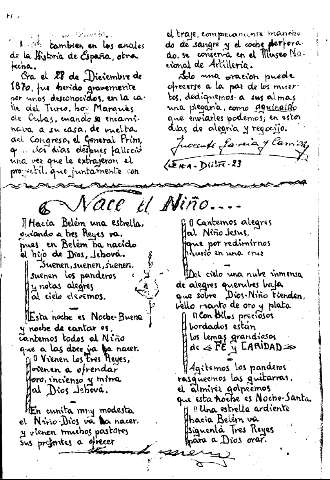 también en los anales
de la Historia de España, otra
fecha.
Era el 27 de Diciembre de
1870, fue herido gravemente
por unos desconocidos, en la ca-
lle del Turco, hoy Marqués
de Cubas, cuando se encami-
naba a su casa, de vuelta
del Congreso, el General Prim,
que los días después falleció
una vez que le extrajeron el
proyectil, que juntamente con
el traje, completamente mancha
do de sangre y el coche perfora-
do, se conserva en el Museo Na-
cional de Artillería.
Solo una oración puede
ofrecerse a la paz de los muer-
tos, dediquemos a sus almas
una plegaria, como
que enviarles podemos, en estos
días de alegría y regocijo.
Nace el Niño....
Hacia Belén una estrella,
guiando a tres Reyes va,
pues en Belén ha nacido
el hijo de Dios, Jehová.
Suenen, suenen, suenen,
suenen los panderos
y notas alegres
al cielo elevemos.
Esta noche es Noche-Buena
y noche de cantar es,
cantemos todos al Niño
que a las doce ha de nacer.
Vienen los tres Reyes,
vienen a ofrendar
oro, incienso y mirra
al Dios Jehová.
En cunita muy modesta
el Niño-Dios va a nacer
y vienen muchos pastores
sus presentes a ofrecer
Cantemos alegres
al Niño Jesús,
que por redimirnos
murió en una cruz
Del cielo una nube inmensa
de alegres querubes baja
que sobre Dios-Niño tienden,
bello manto de oro y plata
Con hilos preciosos
bordados están
los lemas grandiosos
de FÉ y CARIDAD
Agitemos los panderos
rasguemos las guitarras,
el almirez golpeemos
que esta noche es Noche-Santa.
Una estrella ardiente
hacia Belén va
siguenla Tres Reyes
para a Dios orar.